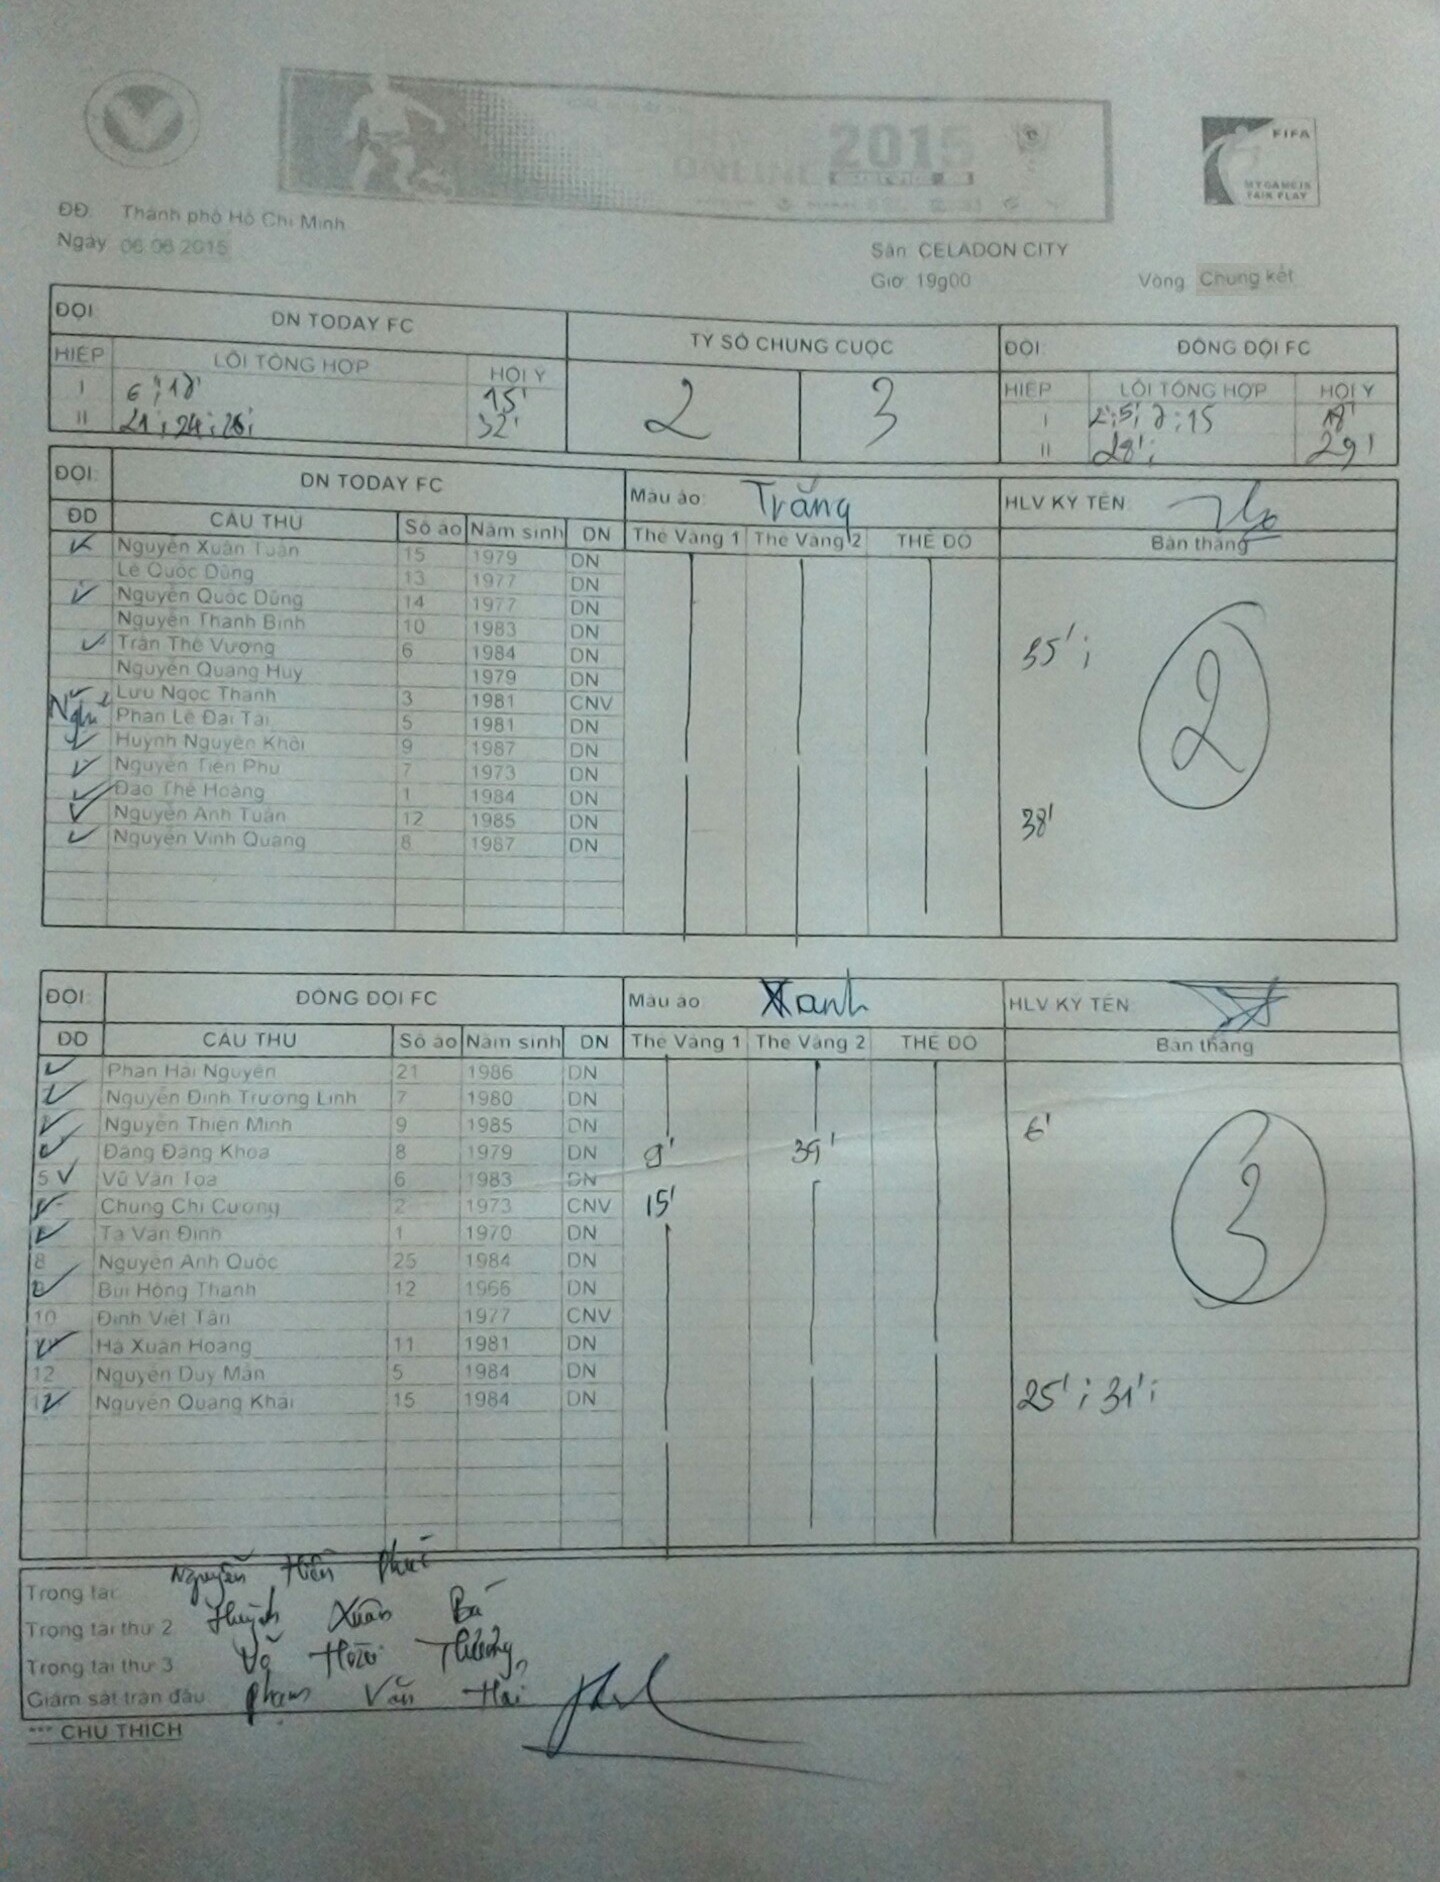 ONLINE 2015
FIFA
MY GAME IS
FAIR PLAY
ĐĐ: Thành phố Hồ Chí Minh
Ngày 06.06.2015
Sân: CELADON CITY
Giờ: 19g00 Vòng Chung kết
ĐỘI: DN TODAY FC TỶ SỐ CHUNG CUỘC ĐỘI: ĐỒNG ĐỘI FC
HIỆP LỖI TỔNG HỢP HỘI Ý 2 3 HIỆP LỖI TỔNG HỢP HỘI Ý
I 15' I 18'
II 21'; 24; 26; 32' II 28'; 29'
ĐỘI: DN TODAY FC Màu áo: Trắng HLV KÝ TÊN:
ĐD CẦU THỦ Số áo Năm sinh DN Thẻ Vàng 1 Thẻ Vàng 2 THẺ ĐỎ Bàn thắng
Nguyễn Xuân Tuấn 15 1979 DN
Lê Quốc Dũng 13 1977 DN
Nguyễn Quốc Dũng 14 1977 DN
Nguyễn Thanh Bình 10 1983 DN
Trần Thế Vương 6 1984 DN 35'; 2
Nguyễn Quang Huy 1979 DN
Lưu Ngọc Thanh 3 1981 CNV
Phan Lê Đại Tài 5 1981 DN
Huỳnh Nguyên Khôi 9 1987 DN
Nguyễn Tiến Phú 7 1973 DN
Đào Thế Hoàng 1 1984 DN
Nguyễn Anh Tuấn 12 1985 DN 38'
Nguyễn Vinh Quang 8 1987 DN
ĐỘI: ĐỒNG ĐỘI FC Màu áo: Xanh HLV KÝ TÊN:
ĐD CẦU THỦ Số áo Năm sinh DN Thẻ Vàng 1 Thẻ Vàng 2 THẺ ĐỎ Bàn thắng
Phan Hải Nguyên 21 1986 DN
Nguyễn Đình Trường Linh 7 1980 DN
Nguyễn Thiện Minh 9 1985 DN 6'
Đặng Đăng Khoa 8 1979 DN 9' 39'
5 Vũ Văn Tỏa 6 1983 DN
Chung Chí Cương 2 1973 CNV 15' 3
Tạ Văn Định 1 1970 DN
8 Nguyễn Anh Quốc 25 1984 DN
Bùi Hồng Thanh 12 1966 DN
10 Đinh Viết Tân 1977 CNV
Hà Xuân Hoàng 11 1981 DN
12 Nguyễn Duy Mẫn 5 1984 DN
Nguyễn Quang Khải 15 1984 DN 25'; 31';
Trọng tài: Nguyễn Hiền Phúc
Trọng tài thứ 2 Huỳnh Xuân Bá
Trọng tài thứ 3 Võ Hoài Thương
Giám sát trận đấu Phạm Văn Hai
*** CHÚ THÍCH